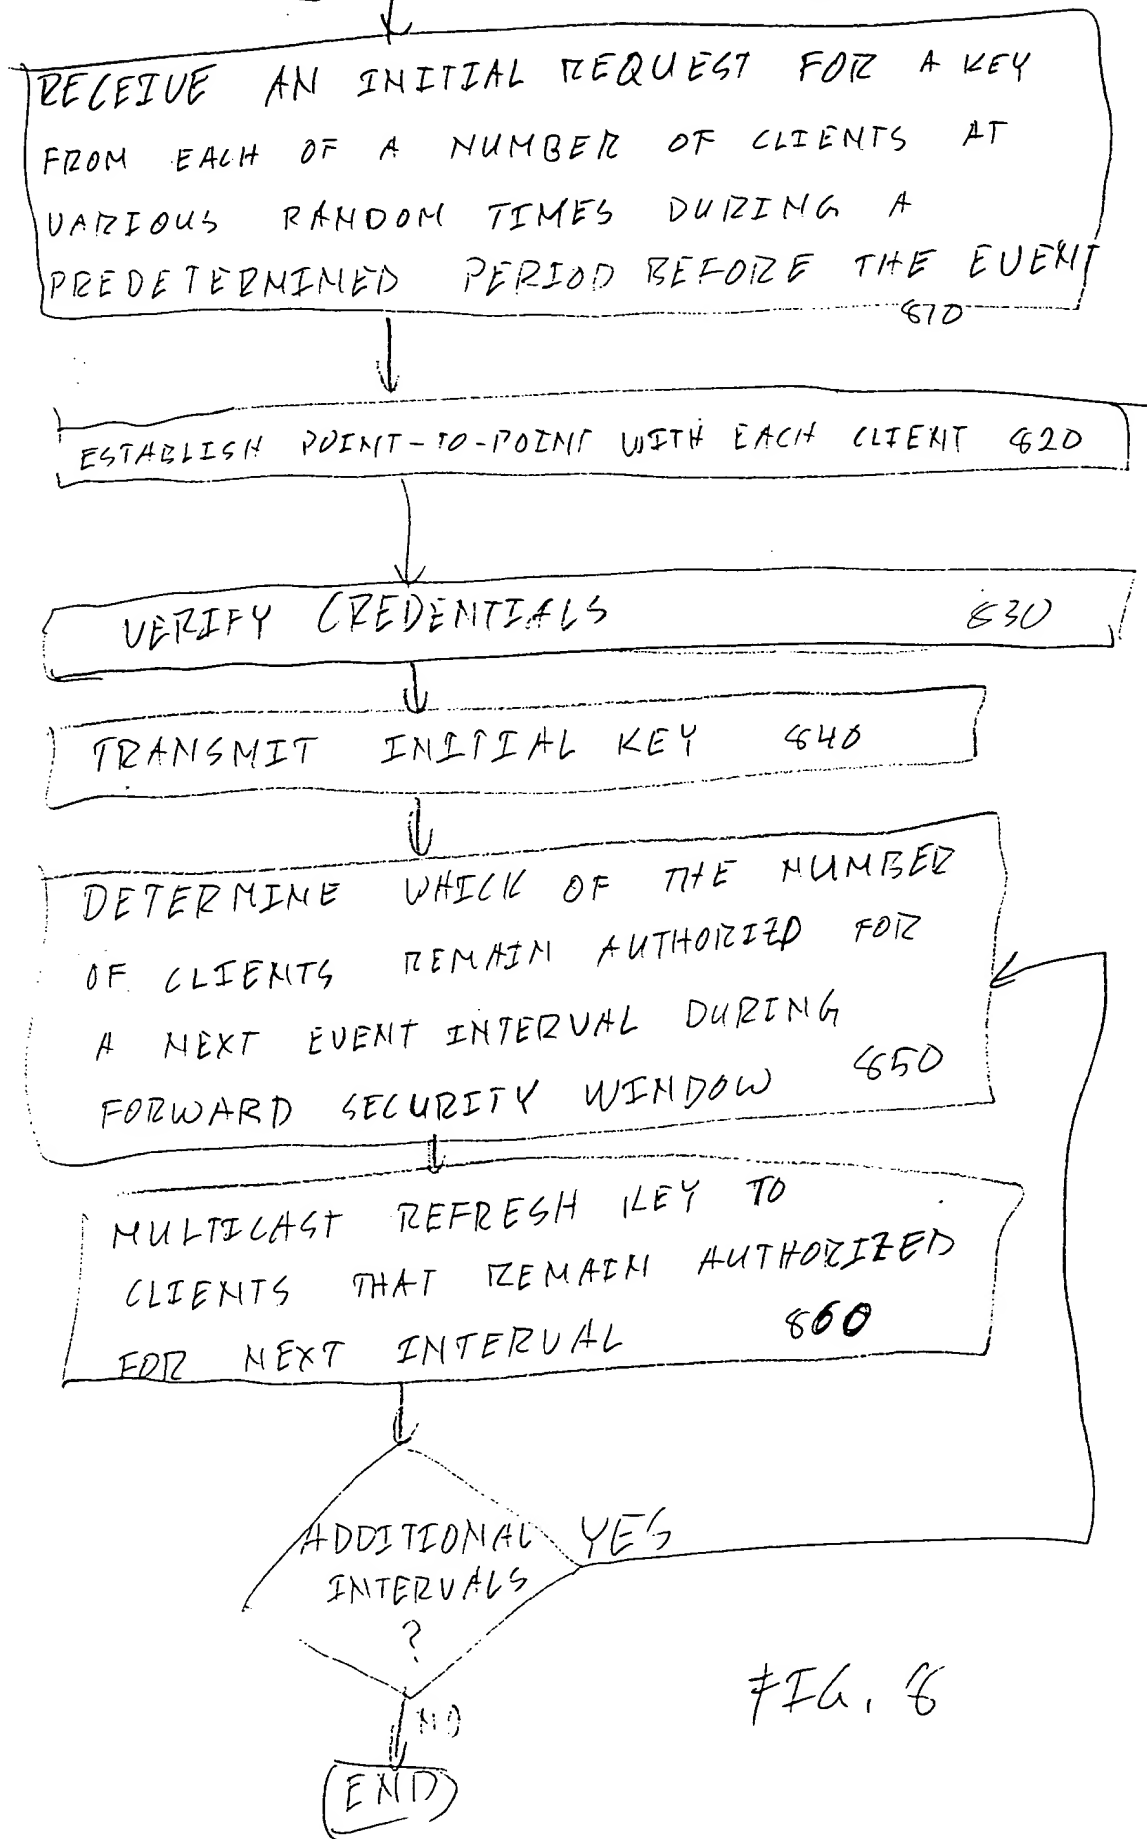 RECEIVE AN INITIAL REQUEST FOR A KEY
FROM EACH OF A NUMBER OF CLIENTS AT
VARIOUS RANDOM TIMES DURING A
PREDETERMINED PERIOD BEFORE THE EVENT
810
ESTABLISH POINT-TO-POINT WITH EACH CLIENT 820
VERIFY CREDENTIALS 830
TRANSMIT INITIAL KEY 840
DETERMINE WHICH OF THE NUMBER
OF CLIENTS REMAIN AUTHORIZED FOR
A NEXT EVENT INTERVAL DURING
FORWARD SECURITY WINDOW 850
MULTICAST REFRESH KEY TO
CLIENTS THAT REMAIN AUTHORIZED
FOR NEXT INTERVAL 860
ADDITIONAL YES
INTERVALS
?
NO
END
FIG. 8